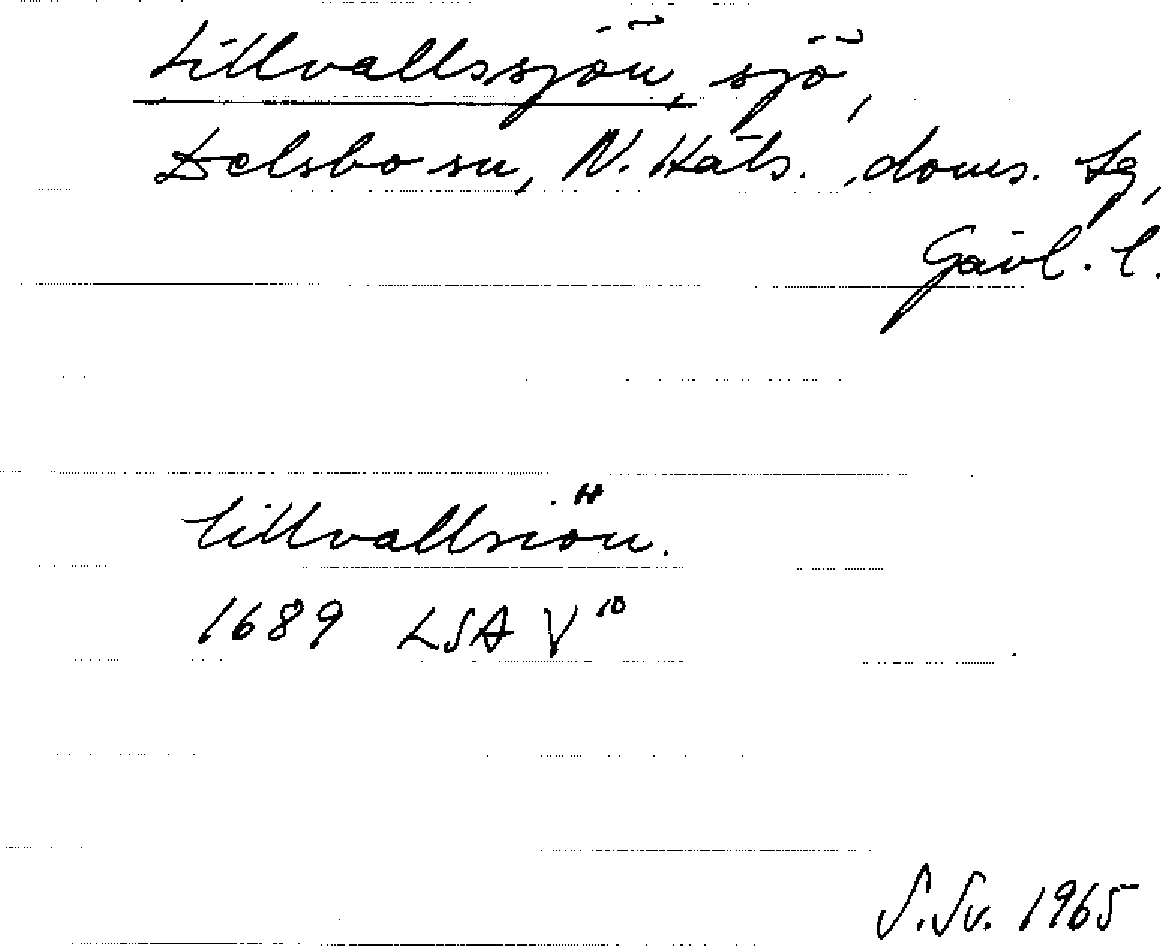 Lillvallssjön, sjö,
Delsbo sn, N. Häls. doms. tg,
Gävl. l.
lillvallsiön.
1689 LSA V¹⁰
S.Sv. 1965